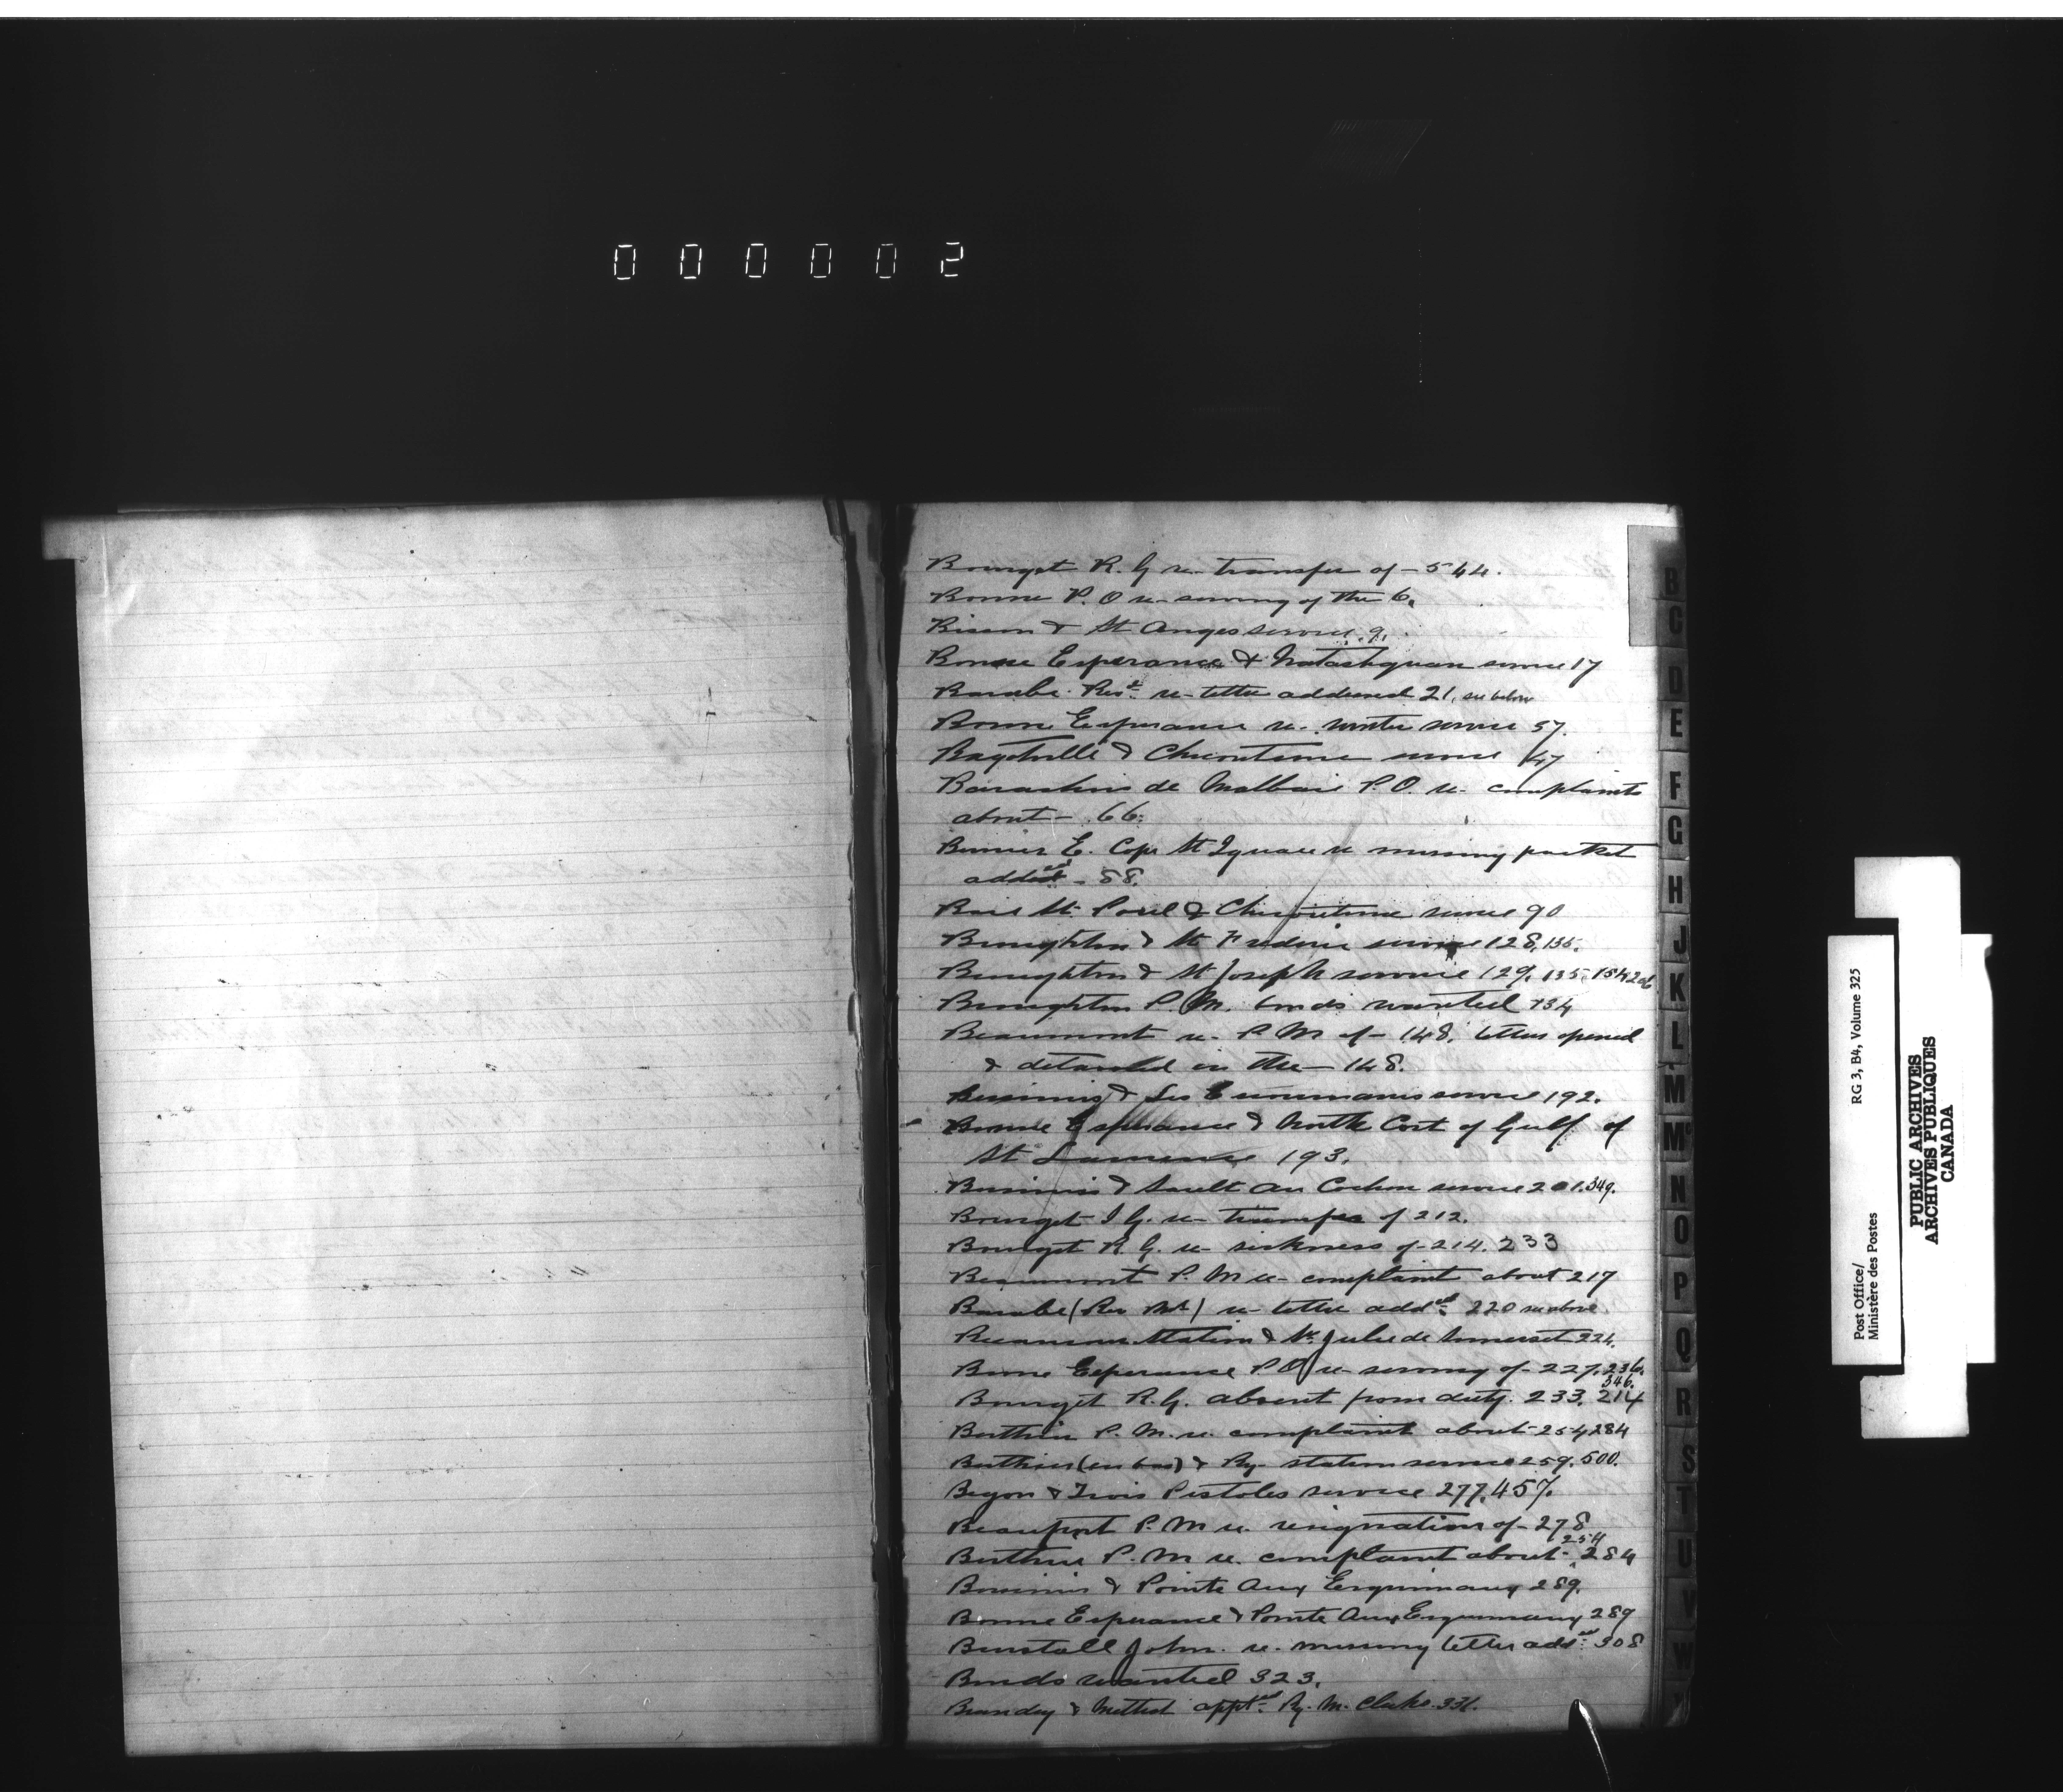 000002
Bourget R. G re- transfer of - 544.
Bonne P. O re- serving of the 6.
Bisson & St Anges service. 9.
Bonne Esperance & Natashquan service 17
Barabe. Revd. re- letter addressed 21. see below
Bonne Esperance re- winter service 37.
Bagotville & Chicoutimi service 47
Barachois de Malbaie P.O. re- complaints
about - 66.
Bernier E. Cape St Ignace re missing packet
added - 88.
Baie St. Paul & Chicoutimi service 90
Broughton & St Frederic service 128, 135.
Broughton & St Joseph service 129. 135. 154 206
Broughton P. M. bonds wanted 134
Beaumont re- P M of - 148. letters opened
& detained in the - 148.
Bersimis & Les Escoumains service 192.
Bonne Esperance & North Cost of Gulf of
St Lawrence 193.
Bersimis & Sault Au Cochon service 201. 349.
Bourget I G. re- transfer of 212.
Bourget R. G. re- sickness of - 214. 233
Beaumont P. M re- complaint about 217
Barabe (Rev Mr) re- letter addd. 220 see above.
Station & Ste Julie de Somerset 224.
Bonne Esperance P O re- serving of - 227. 236.
346.
Bourget R. G. absent from duty. 233. 214
Berthier P. M. re. complaint about - 254 284
Berthier (en bas) & Ry- station service 259. 500.
Begon & Trois Pistoles service 277. 457.
Beauport P. M re. resignation of - 278
254
Berthier P. M re. complaint about - 284
Bersimis & Pointe Aux Esquimaux 289.
Bonne Esperance & Pointe Aux Esquimaux 289
Burstall John. re- missing letter addd. 308
Bonds wanted 323.
& appted. Ry. M. Clerks 331.
B
C
D
E
F
G
H
J
K
L
M
Mc
N
O
P
Q
R
S
T
U
V
W
Post Office/
Ministère des Postes
RG 3, B4, Volume 325
PUBLIC ARCHIVES
ARCHIVES PUBLIQUES
CANADA